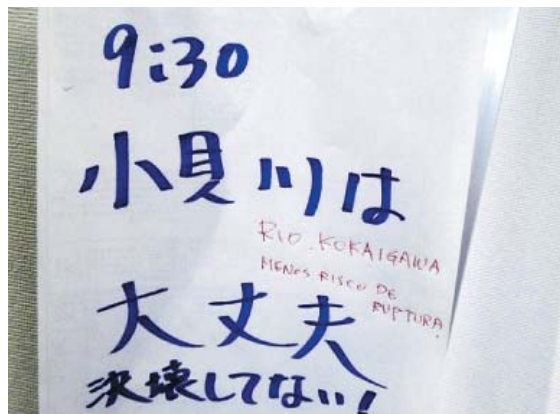 9:30
小貝川は
RIO. KOKAIGAWA
MENOS RISCO DE
RUPTURA.
大丈夫
決壊してない!